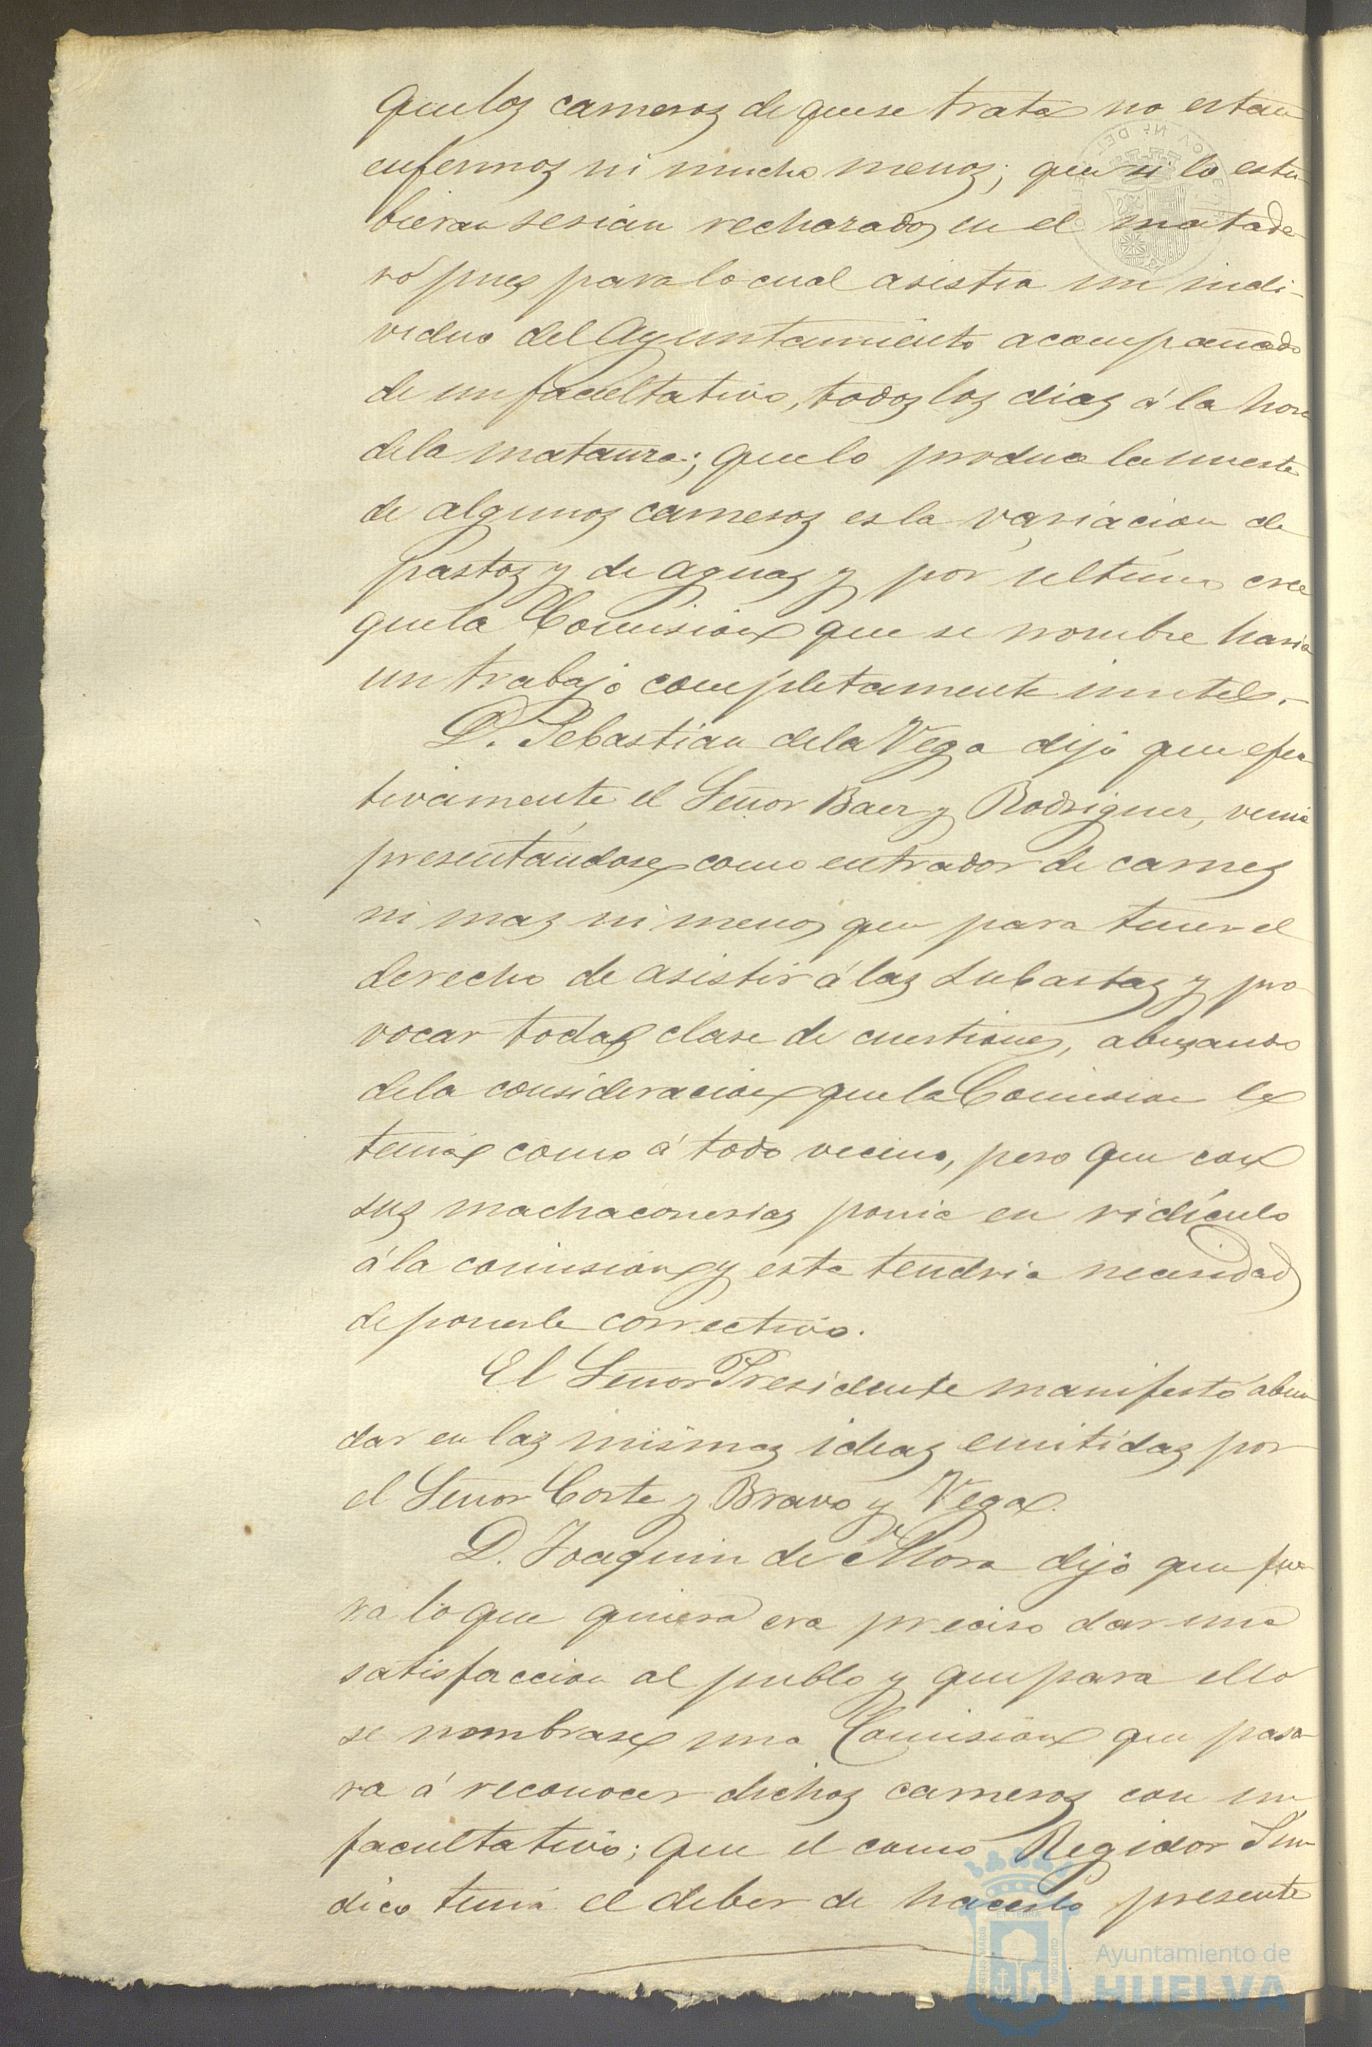 que los carneros de que se trata no estan
enfermos ni mucho menos; que si lo estu-
bieran serian rechazados en el matade-
ro pues para lo cual asistia un indi-
viduo del Ayuntamiento acompañado
de un facultativo, todos los dias á la hora
de la matanza; que lo produce la muerte
de algunos carneros es la variacion de
pastos y de aguas y por último cree
que la Comision que se nombre haria
un trabajo completamente inutil.
D. Sebastian de la Vega dijo que efec-
tivamente el Señor Baez y Rodriguez, venia
presentándose como entrador de carnes
ni mas ni menos que para tener el
derecho de asistir á las subastas y pro-
vocar toda clase de cuestiones, abusando
de la consideracion que la Comision le
tenia como á todo vecino, pero que con
sus machaconerias ponia en ridículo
á la comision y esta tendria necesidad
de ponerle correctivo.
El Señor Presidente manifestó abun-
dar en las mismas ideas emitidas por
el Señor Corte y Bravo y Vega.
D. Joaquin de Mora dijo que fue-
ra lo que quiera era preciso dar una
satisfaccion al pueblo y que para ello
se nombrase una Comision que pasa-
ra á reconocer dichos carneros con un
facultativo; que el como Regidor Sin-
dico tenia el deber de hacerlo presente
Ayuntamiento de
HUELVA